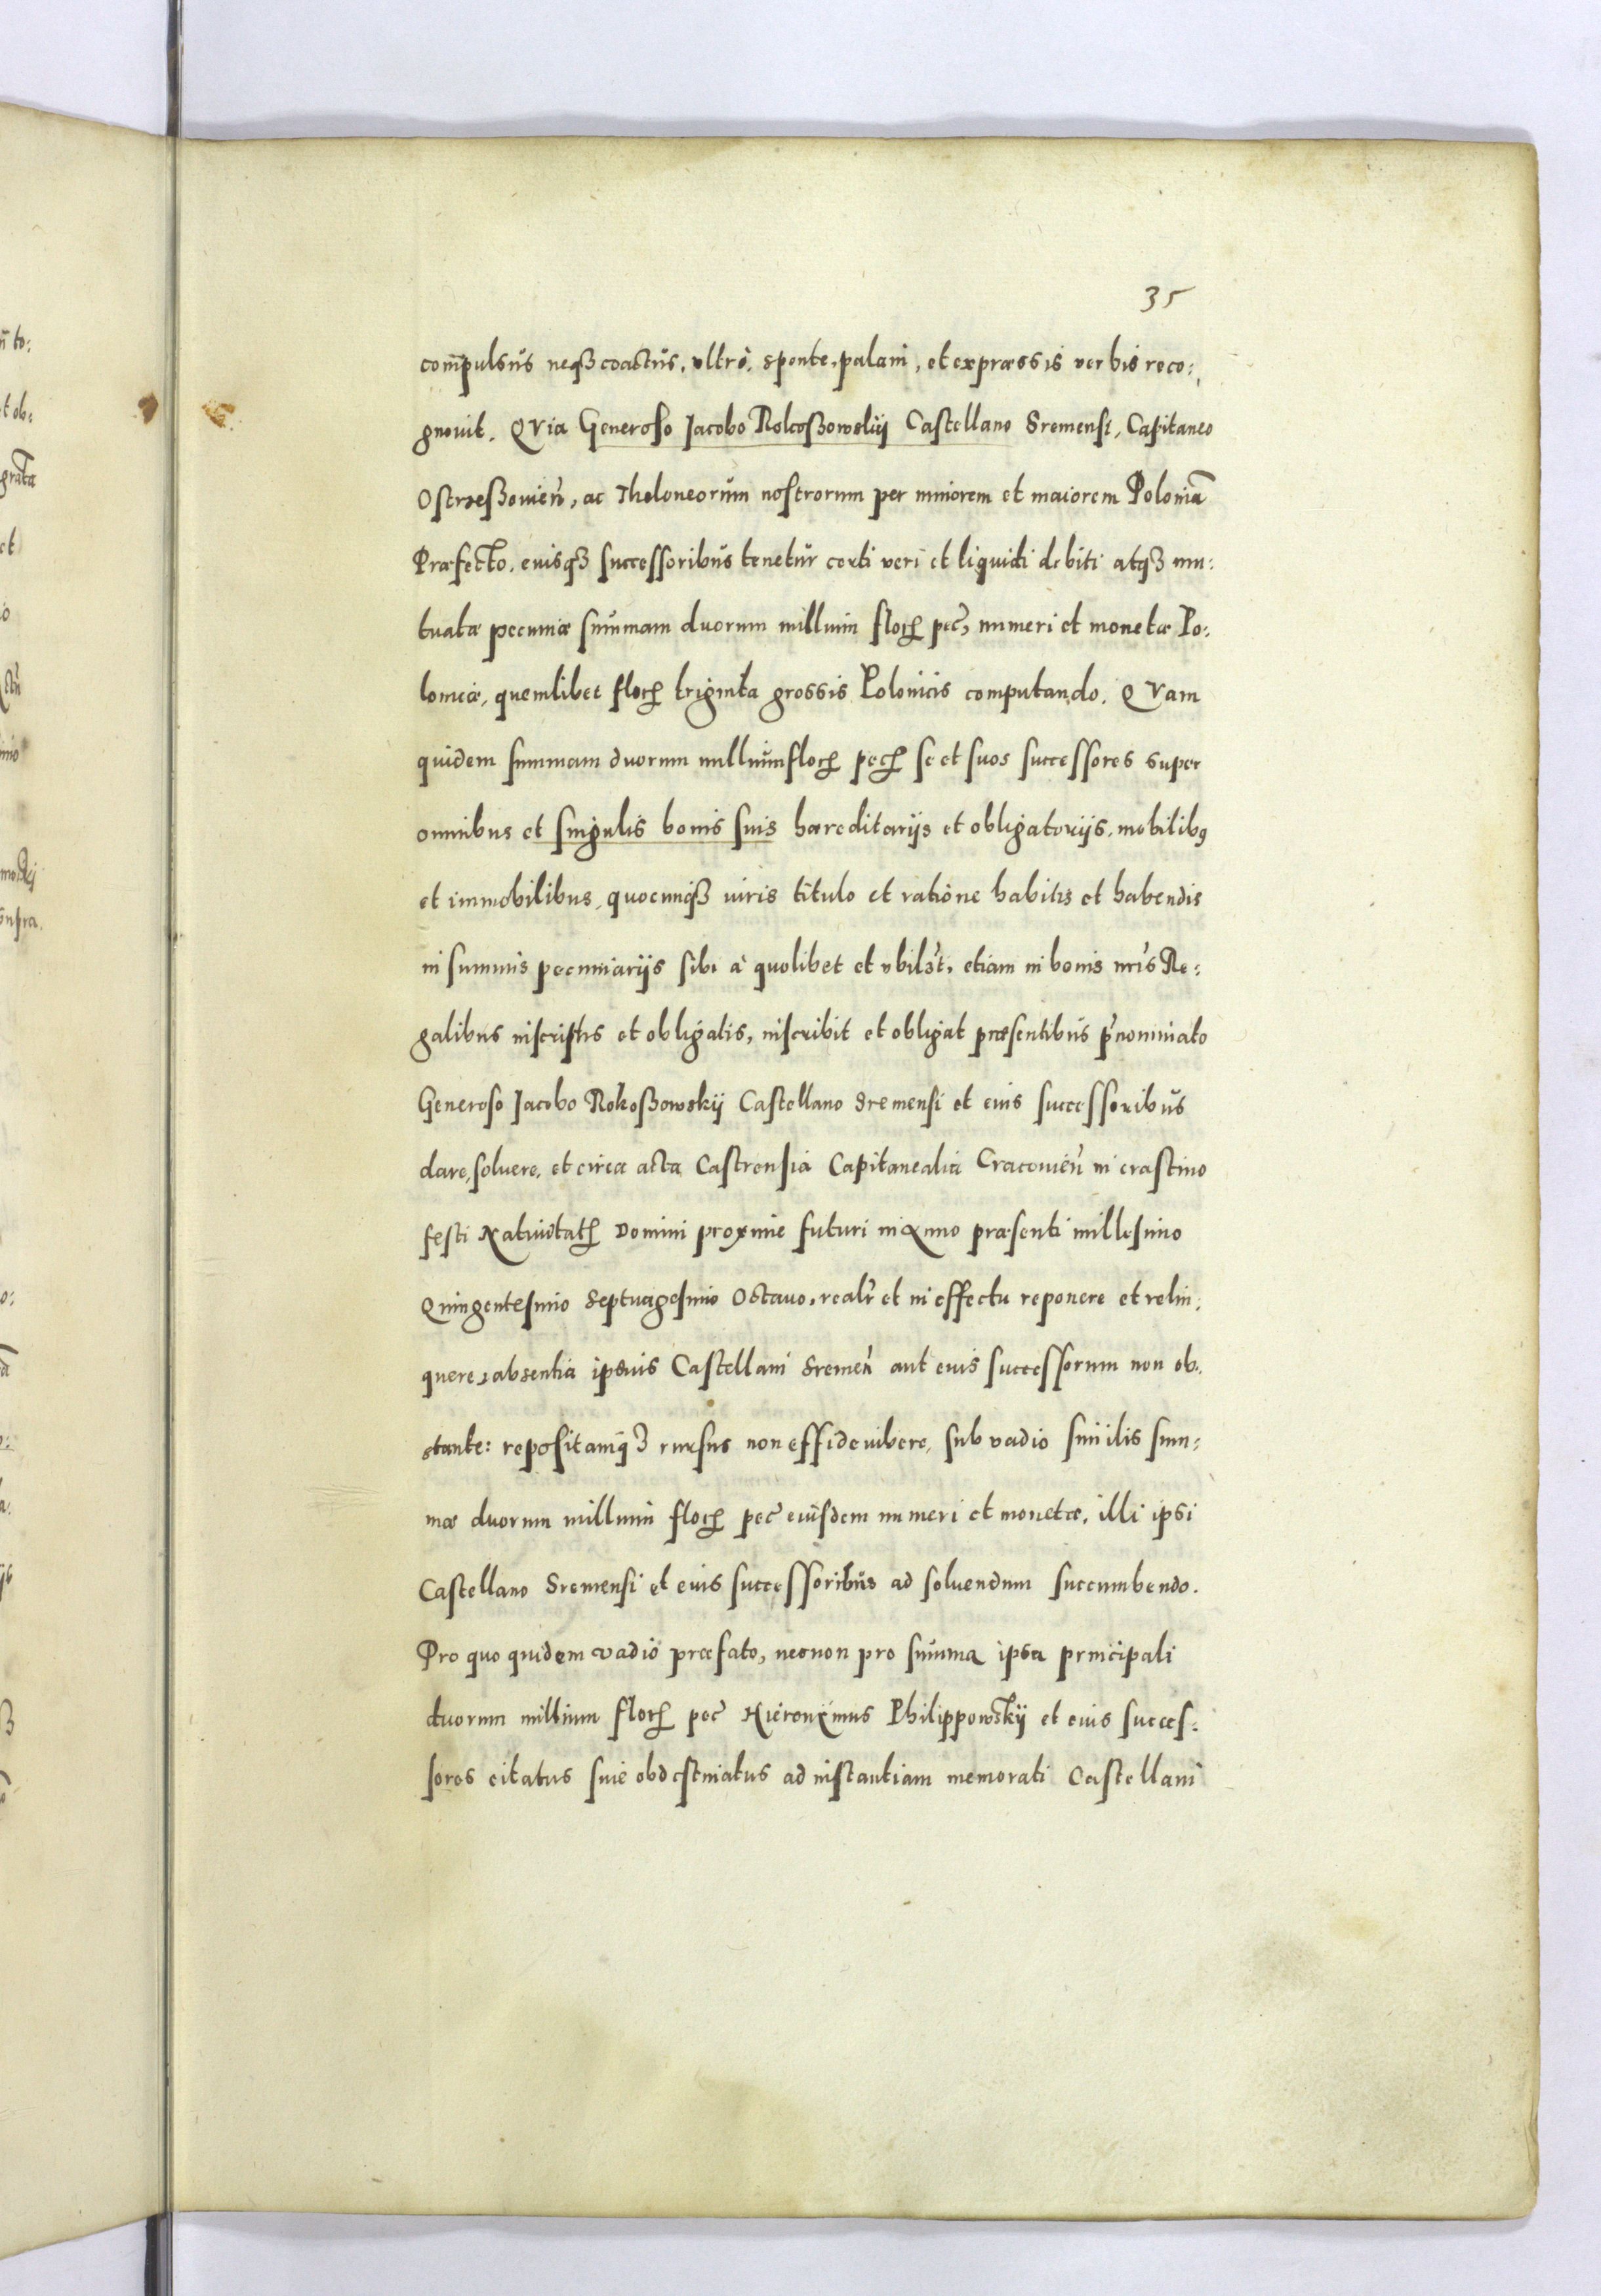 35
compulsus neqꝫ coactus, vltrò, sponte, palam, et expræssis verbis reco:
gnouit. QVia Generoso Jacobo Rokoßowskij Castellano Sremensi, Capitaneo
Ostrzeßouien̄, ac Theloneorum nostrorum per minorem et maiorem Poloniã
Præfecto, eiusqꝫ successoribus tenetur certi veri et liquidi debiti atqꝫ mu:
tuatæ pecuniæ summam duorum millium floꝝ pec̃, numeri et monetæ Po:
lonicæ, quemlibet floꝝ triginta grossis Polonicis computando. QVam
quidem summam duorum millium floꝝ pecꝝ se et suos successores super
omnibus et singulis bonis suis hæreditarijs et obligatorijs, mobilibꝰ
et immobilibus, quocunqꝫ iuris titulo et ratione habitis et habendis
in summis pecuniarijs sibi à quolibet et vbilꝫt, etiam in bonis nr̃is Re:
galibus inscriptis et obligatis, inscribit et obligat præsentibus p̃nominato
Generoso Jacobo Rokoßowskij Castellano Sremensi et eius successoribus
dare, soluere, et circa acta Castrensia Capitanealia Cracouien̄ in crastino
festi Natiuitatꝭ Domini proxime futuri in Anno præsenti millesimo
Quingentesimo Septuagesimo Octauo, realr̃ et in effectu reponere et relin:
quere, absentia ipsius Castellani Sremen̄ aut eius successorum non ob:
stante: repositamqꝫ rursus non effideiubere, sub vadio similis sum:
mæ duorum millium floꝝ pec̃ eiusdem numeri et monetæ, illi ipsi
Castellano Sremensi et eius successoribus ad soluendum succumbendo.
Pro quo quidem vadio præfato, necnon pro summa ipsa principali
duorum millium floꝝ pec̃ Hieronymus Philippowskij et eius succes:
sores citatus siue obdestinatus ad instantiam memorati Castellani